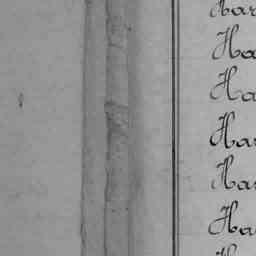 Har
Ha
Ha
Har
Har
Ha